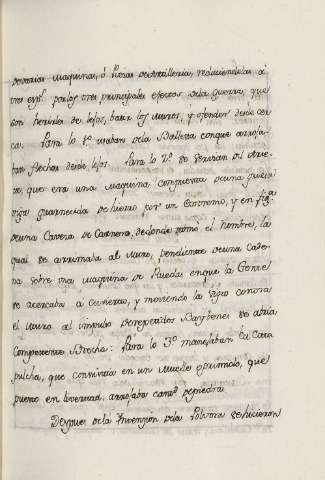 de varias Maquinas, ó Piezas de Artilleria, reduciendolas á
tres esp.s por los tres principales efectos de la guerra, que
son herirla de lejos, batir los muros, y ofender desde cer
ca. Para lo 1.o usaban de la Ballesta con que arroja-
ban flechas desde lejos. Para lo 2.o se servian del Arie-
te, que era una Maquina compuesta de una gruesa
viga guarnecida de hierro por un extremo, y en fig.a
de una Caveza de Carnero, de donde tomó el nombre, la
qual se arrimaba al Muro, pendiente de una Cade-
na sobre una maquina de Ruedas en que la Gente
se acercaba á cuvierto, y moviendo la Viga contra
el Muro al impulso de repetidos Baybenes se abria
Competente Brecha: Para lo 3.o manejaban la Cata
pulcha, que consistia en un Muelle que
puesto en livertad, arrojaba de piedra
Despues de la Invenzion de la Polvora se hicieron